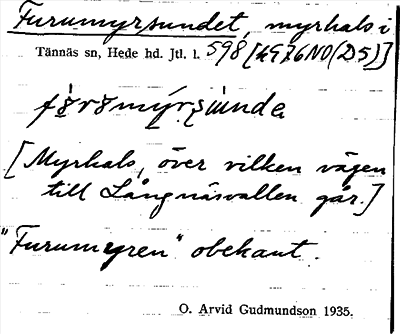 Furumyrsundet, myrhals i
Tännäs sn, Hede hd. Jtl. l. 598 [4976NO(D5)]
[Myrhals, över vilken vägen
till Långnäsvallen går.]
"Furumyren" obekant.
O. Arvid Gudmundson 1935.